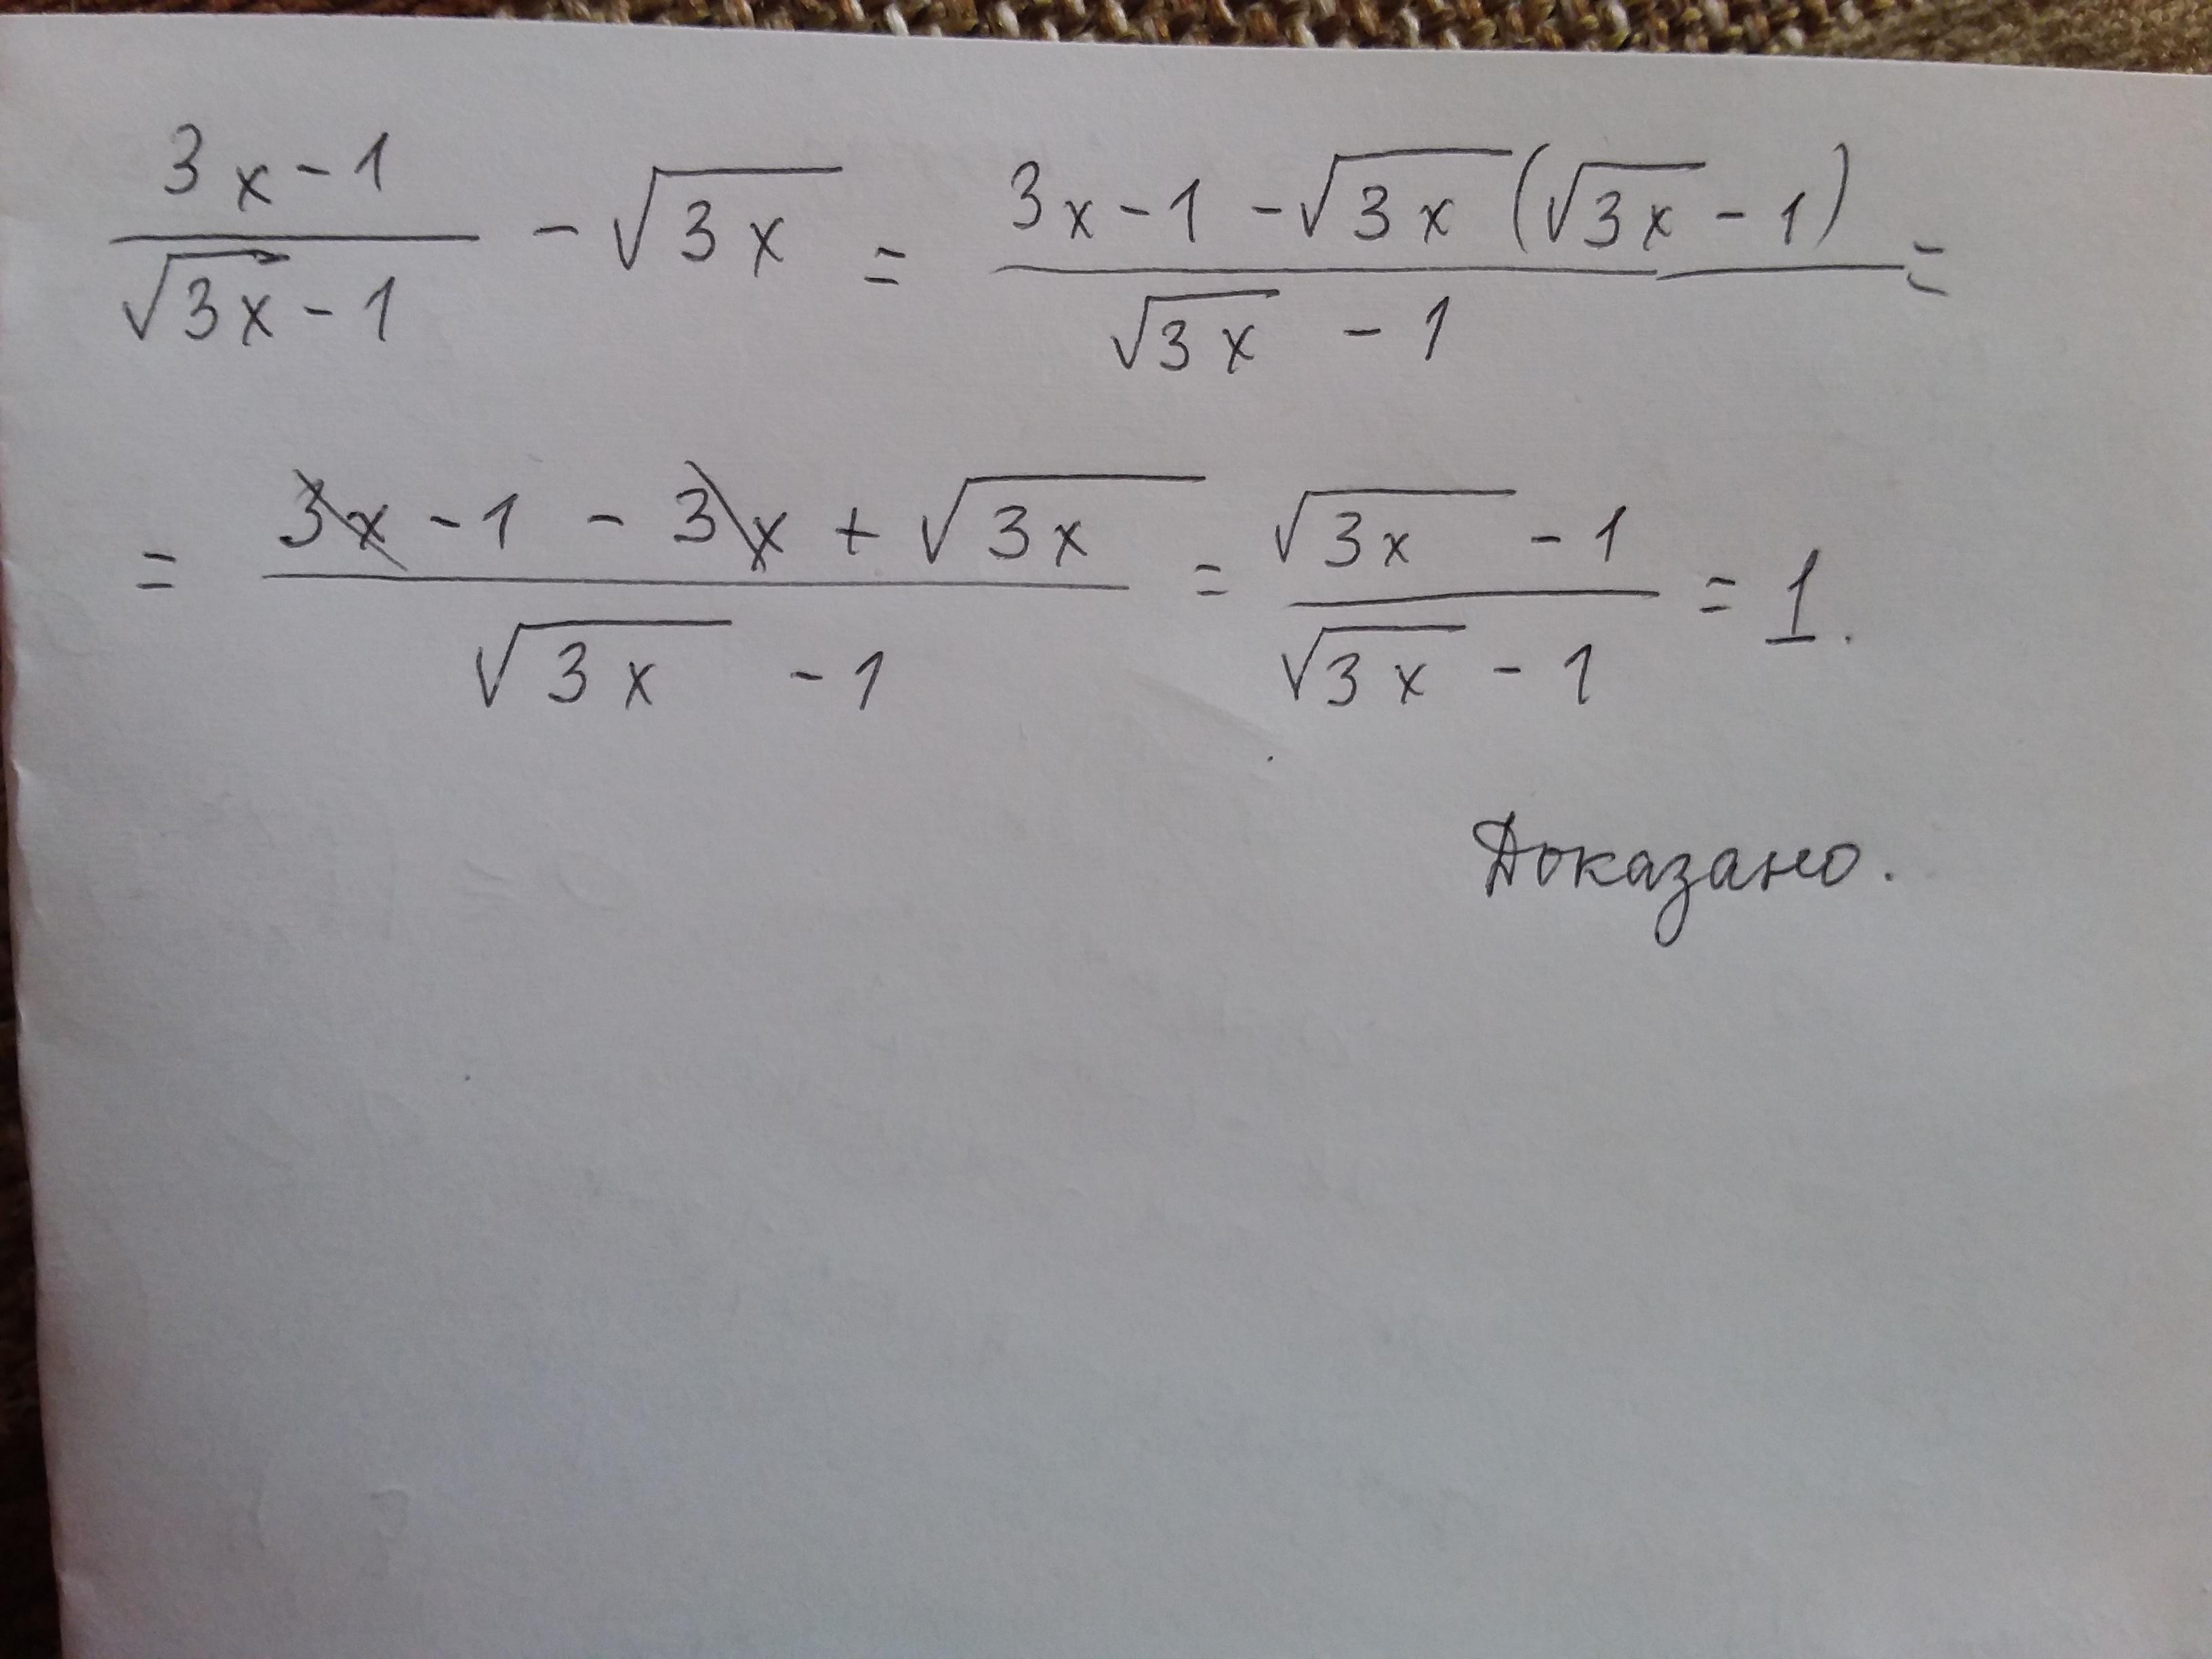 (3x - 1)/(√3x - 1) - √3x = (3x - 1 - √3x (√3x - 1))/(√3x - 1) =
= (3x - 1 - 3x + √3x)/(√3x - 1) = (√3x - 1)/(√3x - 1) = 1.
Доказано.